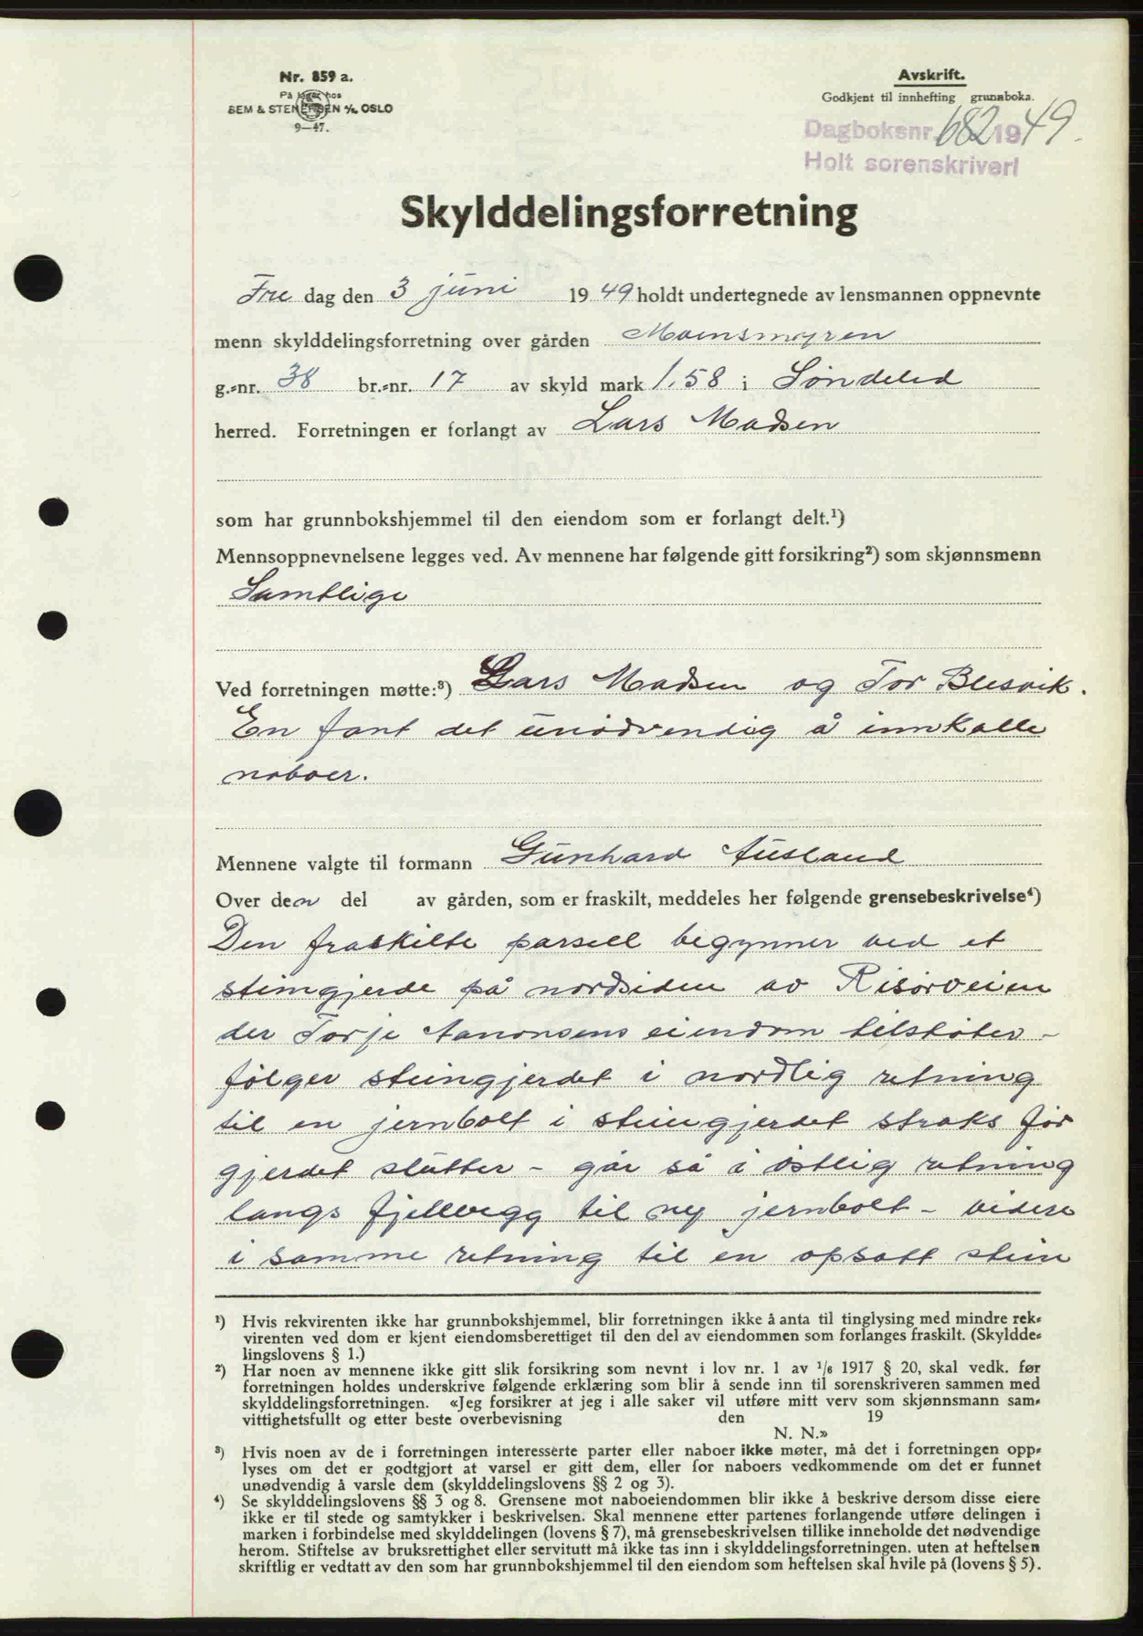 Nr. 859 a.
På lager hos
SEM & STENERSEN A/S, OSLO
9—47.
Avskrift.
Godkjent til innhefting grunnboka.
Dagboksnr. 682 1949.
Holt sorenskriveri
Skylddelingsforretning
Fre dag den 3 juni 1949 holdt undertegnede av lensmannen oppnevnte
menn skylddelingsforretning over gården Moensmyren
g.-nr. 38 br.-nr. 17 av skyld mark 1.58 i Søndeled
herred. Forretningen er forlangt av Lars Madsen
som har grunnbokshjemmel til den eiendom som er forlangt delt.¹)
Mennsoppnevnelsene legges ved. Av mennene har følgende gitt forsikring²) som skjønnsmenn
Samtlige
Ved forretningen møtte:³) Lars Madsen og Tor Blesvik.
En fant det unødvendig å innkalle
naboer.
Mennene valgte til formann Gunhard Ausland
Over den del av gården, som er fraskilt, meddeles her følgende grensebeskrivelse⁴)
Den fraskilte parsell begynner ved et
steingjerde på nordsiden av Risørveien
der Torje Aanonsens eiendom tilstøter -
følger steingjerdet i nordlig retning
til en jernbolt i steingjerdet straks før
gjerdet slutter - går så i østlig retning
langs fjellvegg til ny jernbolt - videre
i samme retning til en opsatt stein
¹) Hvis rekvirenten ikke har grunnbokshjemmel, blir forretningen ikke å anta til tinglysing med mindre rek-
virenten ved dom er kjent eiendomsberettiget til den del av eiendommen som forlanges fraskilt. (Skyldde-
lingslovens § 1.)
²) Har noen av mennene ikke gitt slik forsikring som nevnt i lov nr. 1 av ¹/₆ 1917 § 20, skal vedk. før
forretningen holdes underskrive følgende erklæring som blir å sende inn til sorenskriveren sammen med
skylddelingsforretningen. «Jeg forsikrer at jeg i alle saker vil utføre mitt verv som skjønnsmann sam-
vittighetsfullt og etter beste overbevisning den 19
N. N.»
³) Hvis noen av de i forretningen interesserte parter eller naboer ikke møter, må det i forretningen opp-
lyses om det er godtgjort at varsel er gitt dem, eller for naboers vedkommende om det er funnet
unødvendig å varsle dem (skylddelingslovens §§ 2 og 3).
⁴) Se skylddelingslovens §§ 3 og 8. Grensene mot naboeiendommen blir ikke å beskrive dersom disse eiere
ikke er til stede og samtykker i beskrivelsen. Skal mennene etter partenes forlangende utføre delingen i
marken i forbindelse med skylddelingen (lovens § 7), må grensebeskrivelsen tillike inneholde det nødvendige
herom. Stiftelse av bruksrettighet eller servitutt må ikke tas inn i skylddelingsforretningen. uten at heftelsen
skriftlig er vedtatt av den som har grunnbokshjemmel til den eiendom som heftelsen skal hvile på (lovens § 5).